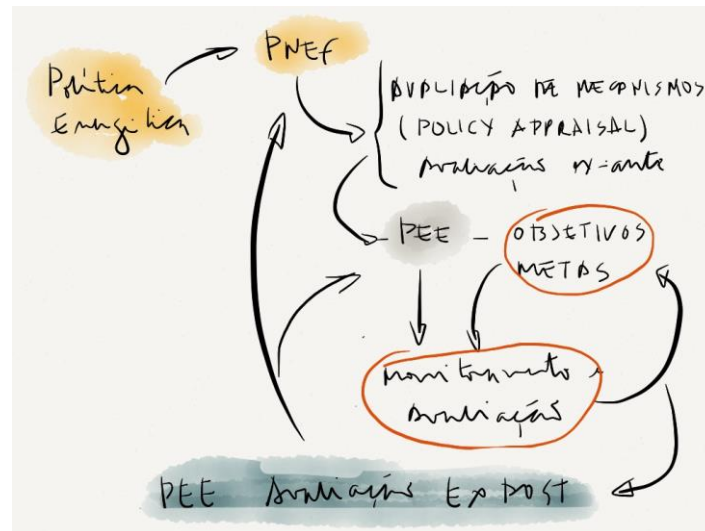 Política
Energética
PNEf
AVALIAÇÃO DE MECANISMOS
(POLICY APPRAISAL)
Avaliação ex-ante
- PEE - OBJETIVOS
METAS
Monitoramento e
Avaliação
PEE Avaliação EX POST